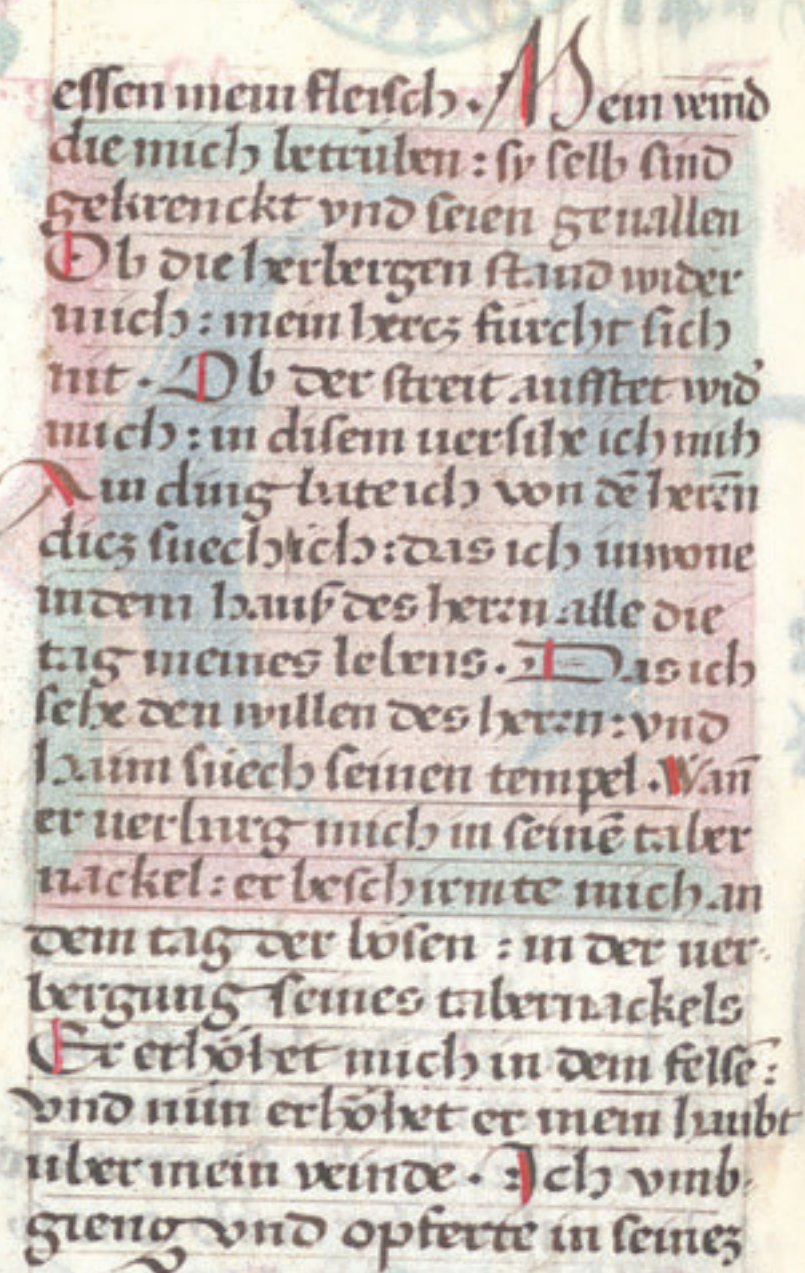 essen mein fleisch . Mein veind
die mich betrüben : sy selb sind
gekrenckt vnd seien geuallen
Ob die herbergen stand wider
mich : mein hercz fürcht sich
nit . Ob der streit aufstet wid'
mich : in disem uersihe ich mich
Ain ding bate ich von dē herrn
dicz suech ich : das ich inwone
in dem hauß des herrn alle die
tag meines lebens . Das ich
sehe den willen des herrn : vnd
haim süech seinen tempel . Wañ
er uerburg mich in seinē taber
nackel : er beschirmte mich an
dem tag der bösen : in der uer-
bergung seines tabernackels
Er erhöhet mich in dem felsē :
vnd nun erhöhet er mein haubt
uber mein veinde . Ich vmb-
gieng vnd opferte in seinez